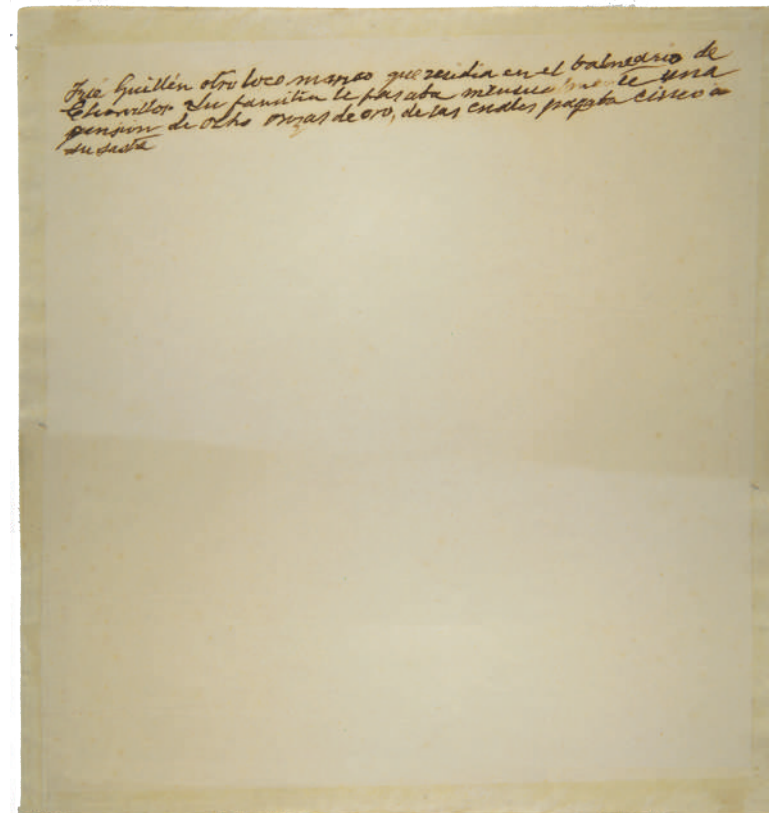 José Guillén otro loco manso que residia en el balneario de
Chorrillos Su familia le pasaba mensualmente una
pension de ocho onzas de oro, de las cuales pagaba cinco a
su